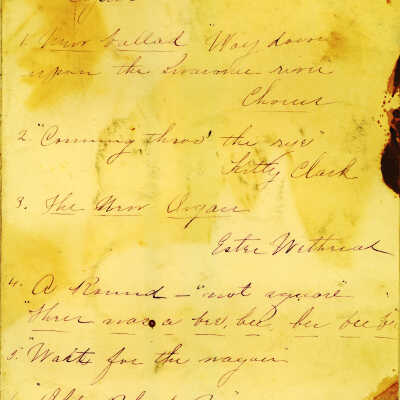 1. New ballad "Way down
upon the Swannie river
Chorus
2 "Comming thro' the rye"
Kitty Clark
3. The New Organ
Ester Withread
4. A Round - "not square"
"Three was a bee, bee, bee bee b
5. "Wait for the wagon